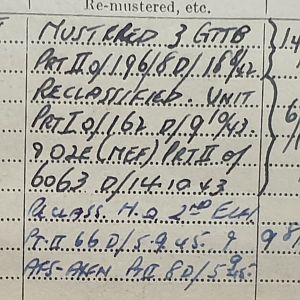 Re-mustered, etc.
MUSTERED 3 GTTB
PRT II O/196/8 D/18 8/42
RECLASSIFIED. UNIT
PRT I O/162 D/9 10/43.
902E (MEF) PRT II O/
6063 D/14.10.43
RECLASS. H.Q 2ND ECH
Pt. II 66 D/5.9.45.
Pt II 8 D/5 9/45.